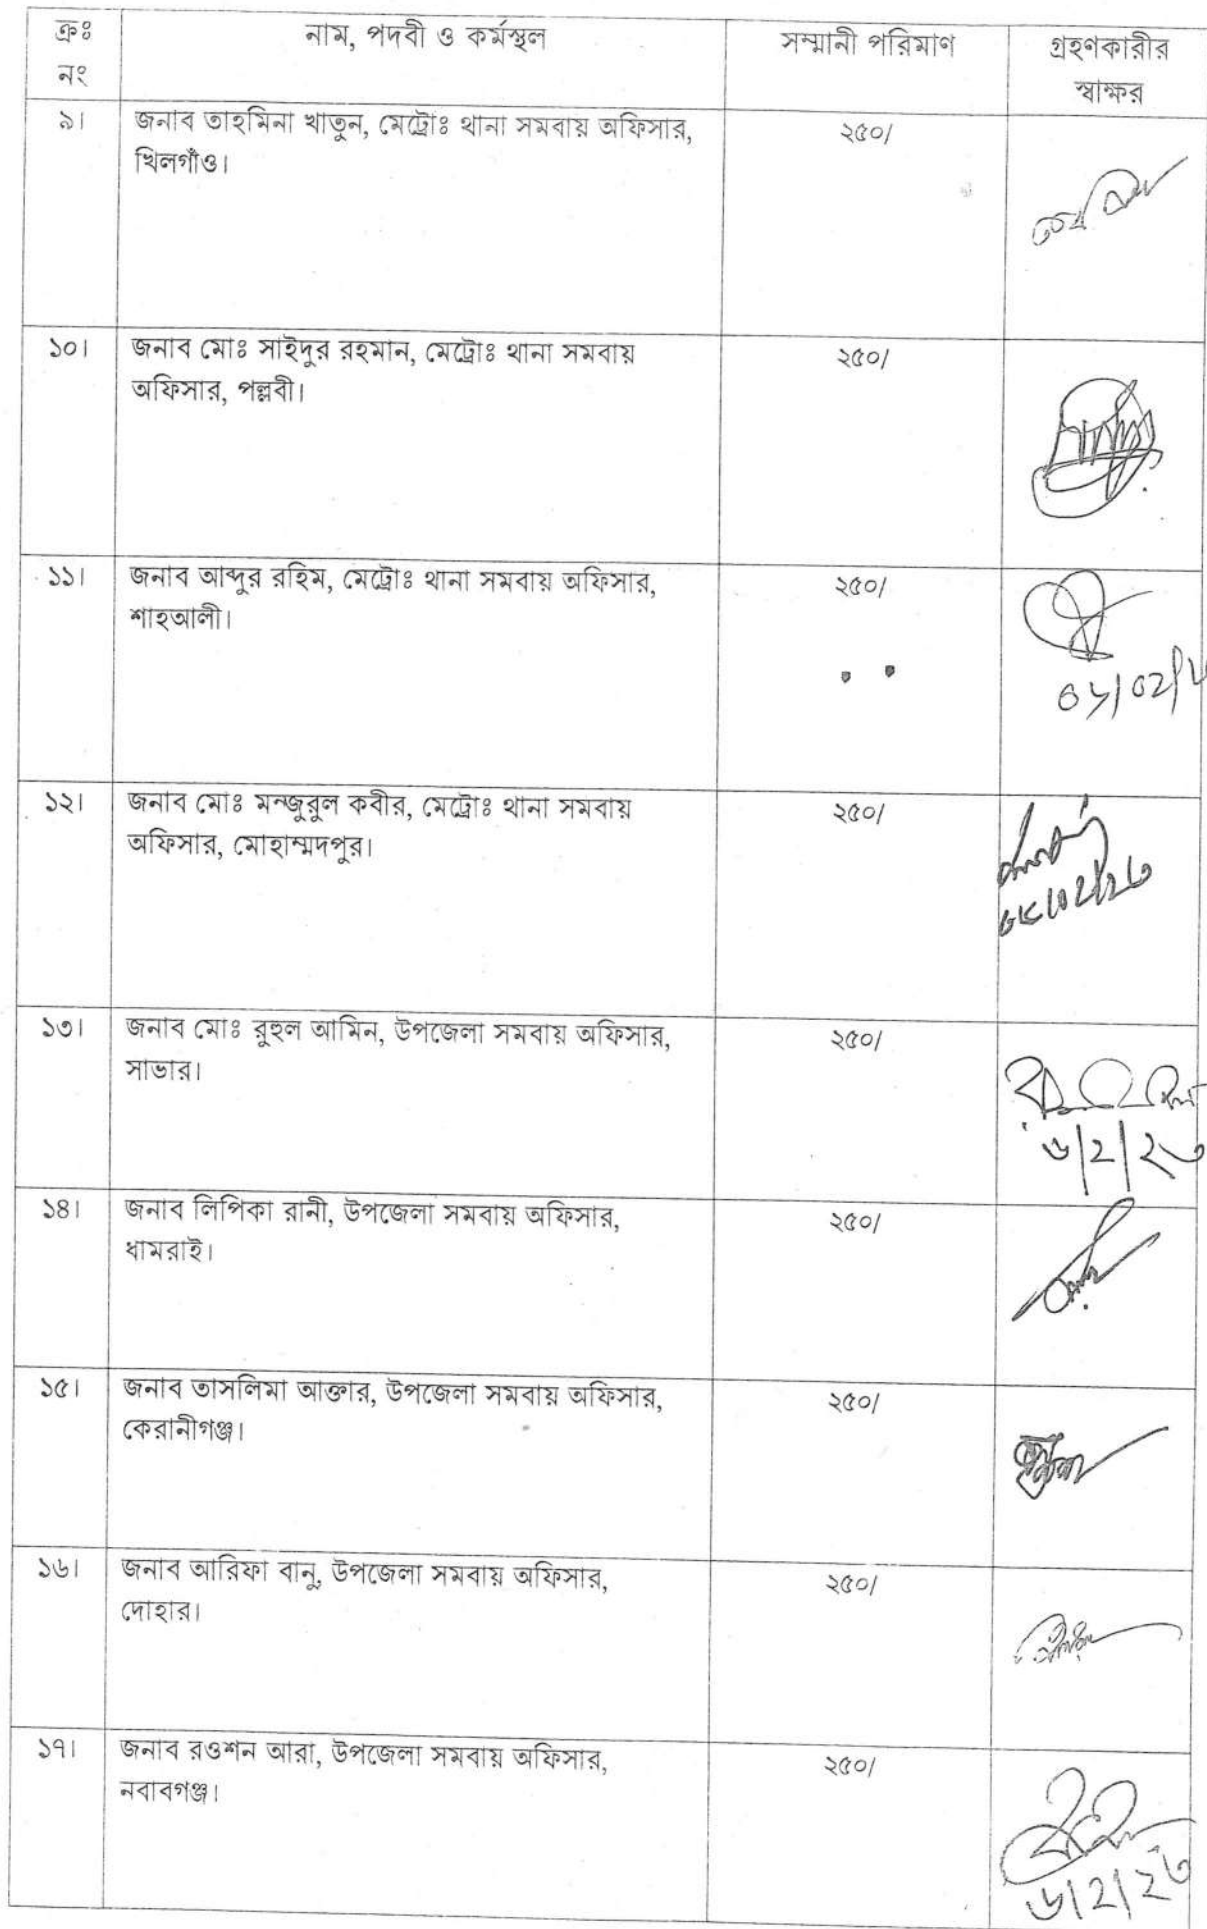 ক্রঃ নাম, পদবী ও কর্মস্থল সম্মানী পরিমাণ গ্রহণকারীর
নং স্বাক্ষর
৯। জনাব তাহমিনা খাতুন, মেট্রোঃ থানা সমবায় অফিসার, ২৫০/
খিলগাঁও।
১০। জনাব মোঃ সাইদুর রহমান, মেট্রোঃ থানা সমবায় ২৫০/
অফিসার, পল্লবী।
১১। জনাব আব্দুর রহিম, মেট্রোঃ থানা সমবায় অফিসার, ২৫০/
শাহআলী।
১২। জনাব মোঃ মনজুরুল কবীর, মেট্রোঃ থানা সমবায় ২৫০/
অফিসার, মোহাম্মদপুর।
১৩। জনাব মোঃ রুহুল আমিন, উপজেলা সমবায় অফিসার, ২৫০/
সাভার।
৬/২/২৩
১৪। জনাব লিপিকা রানী, উপজেলা সমবায় অফিসার, ২৫০/
ধামরাই।
১৫। জনাব তাসলিমা আক্তার, উপজেলা সমবায় অফিসার, ২৫০/
কেরানীগঞ্জ।
১৬। জনাব আরিফা বানু, উপজেলা সমবায় অফিসার, ২৫০/
দোহার।
১৭। জনাব রওশন আরা, উপজেলা সমবায় অফিসার, ২৫০/
নবাবগঞ্জ।
৬/২/২৩